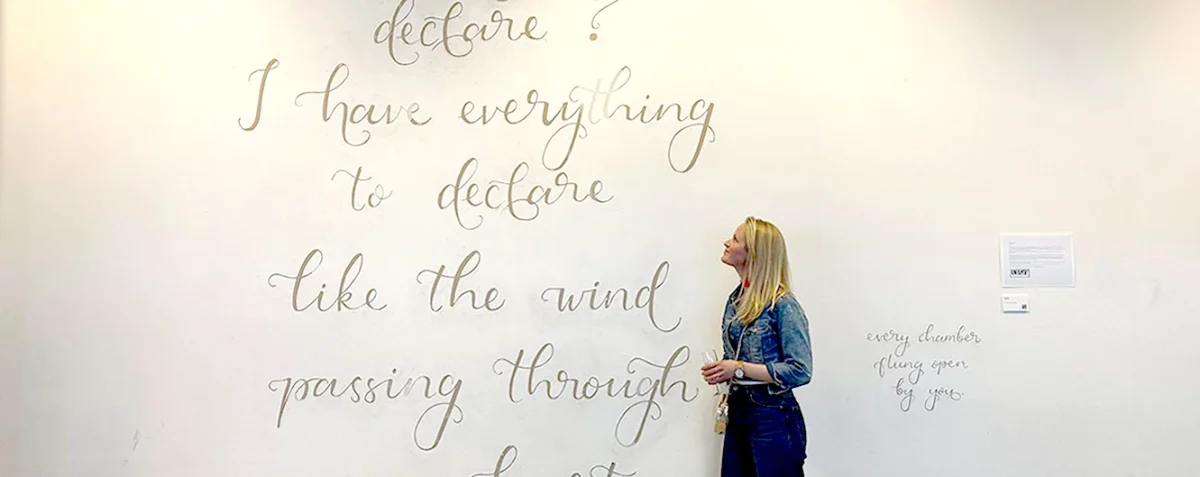 declare ?
I have everything
to declare
like the wind
passing through
every chamber
flung open
by you.